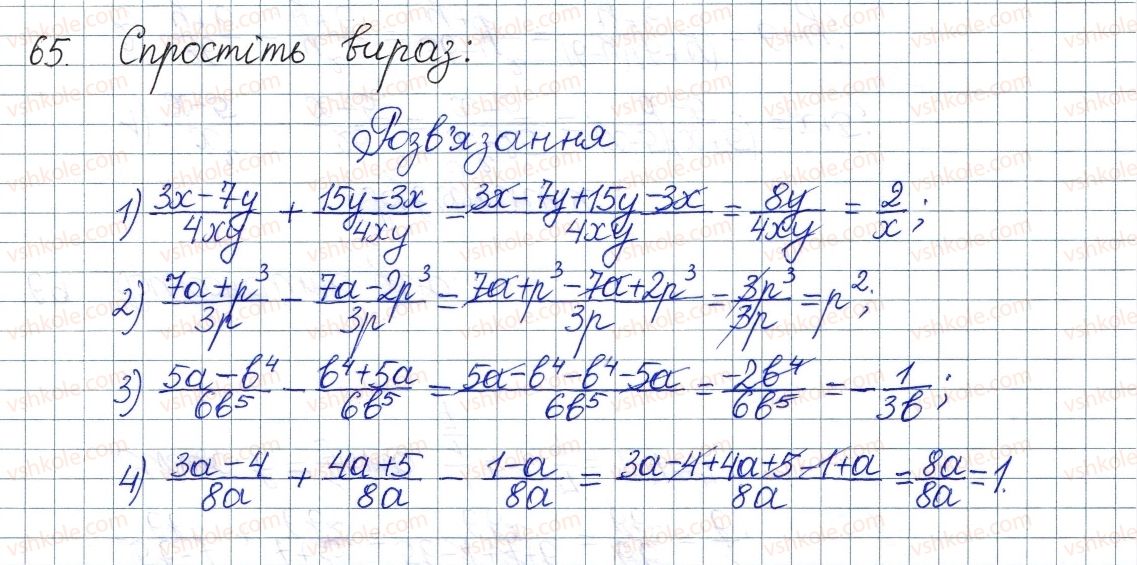 65. Спростіть вираз:
Розв'язання
1) (3x-7y)/(4xy) + (15y-3x)/(4xy) = (3x-7y+15y-3x)/(4xy) = 8y/(4xy) = 2/x;
2) (7a+p³)/(3p) - (7a-2p³)/(3p) = (7a+p³-7a+2p³)/(3p) = 3p³/(3p) = p²;
3) (5a-b⁴)/(6b⁵) - (b⁴+5a)/(6b⁵) = (5a-b⁴-b⁴-5a)/(6b⁵) = (-2b⁴)/(6b⁵) = -1/(3b);
4) (3a-4)/(8a) + (4a+5)/(8a) - (1-a)/(8a) = (3a-4+4a+5-1+a)/(8a) = 8a/(8a) = 1.
vshkole.com